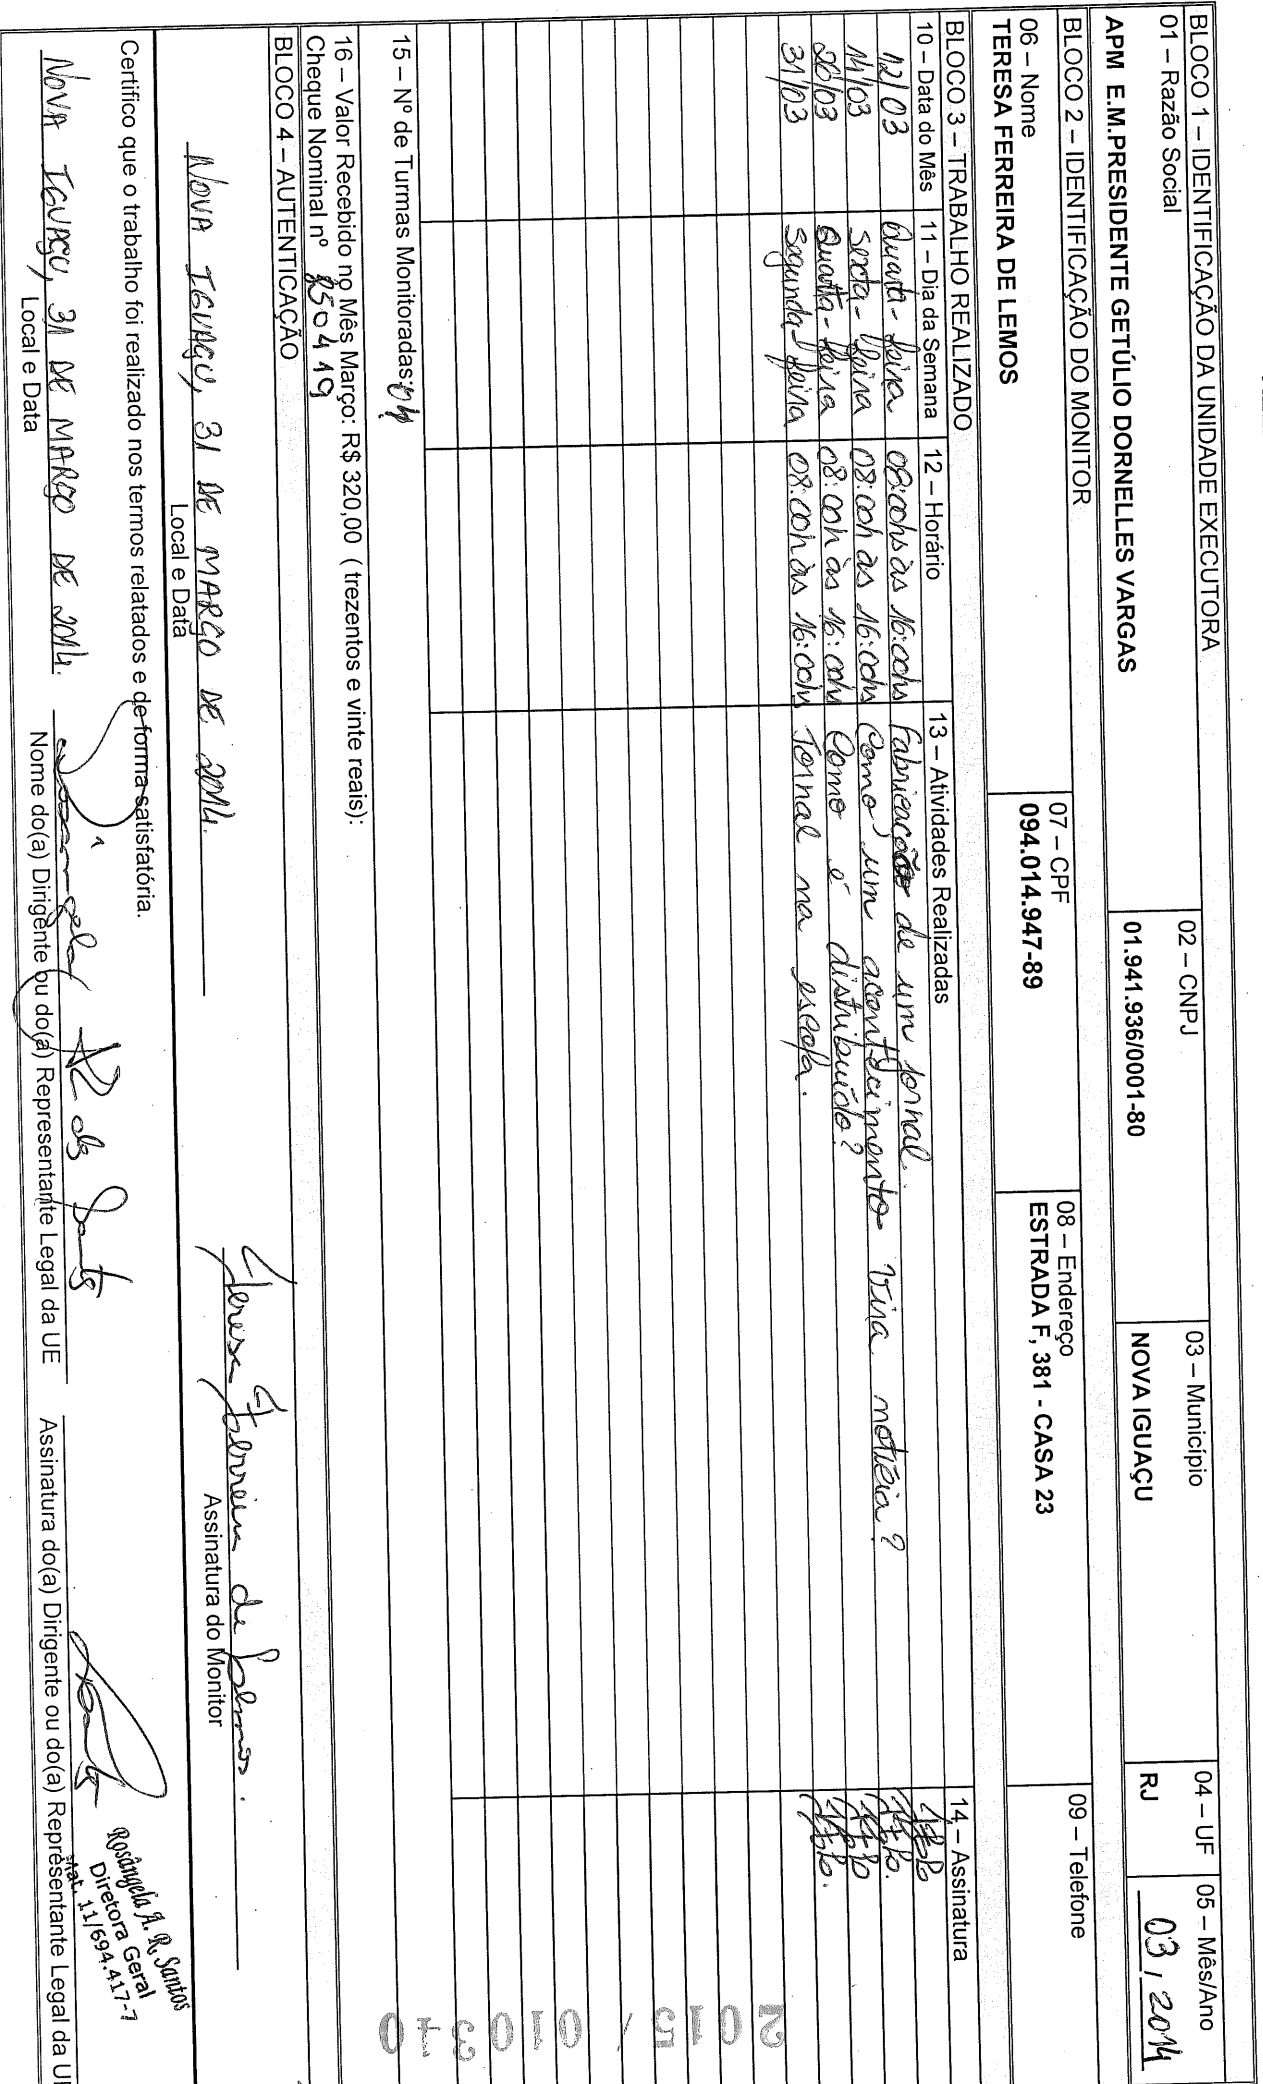 BLOCO 1 – IDENTIFICAÇÃO DA UNIDADE EXECUTORA
01 – Razão Social
APM E.M.PRESIDENTE GETÚLIO DORNELLES VARGAS
02 – CNPJ
01.941.936/0001-80
03 – Município
NOVA IGUAÇU
04 – UF
RJ
05 – Mês/Ano
03 / 2014
BLOCO 2 – IDENTIFICAÇÃO DO MONITOR
06 – Nome
TERESA FERREIRA DE LEMOS
07 – CPF
094.014.947-89
08 – Endereço
ESTRADA F, 381 - CASA 23
09 – Telefone
BLOCO 3 – TRABALHO REALIZADO
10 – Data do Mês 11 – Dia da Semana 12 – Horário 13 – Atividades Realizadas 14 – Assinatura
12/03 Quarta-feira 08:00hs às 16:00hs Fabricação de um jornal.
14/03 Sexta-feira 08:00h às 16:00hs Como um acontecimento vira notícia?
26/03 Quarta-feira 08:00h às 16:00hs Como é distribuído?
31/03 Segunda-feira 08:00h às 16:00hs Jornal na escola.
15 – Nº de Turmas Monitoradas: 04
16 – Valor Recebido no Mês Março: R$ 320,00 ( trezentos e vinte reais):
Cheque Nominal nº 850419
BLOCO 4 – AUTENTICAÇÃO
NOVA IGUAÇU, 31 DE MARÇO DE 2014.
Local e Data
Teresa Ferreira de Lemos.
Assinatura do Monitor
Certifico que o trabalho foi realizado nos termos relatados e de forma satisfatória.
NOVA IGUAÇU, 31 DE MARÇO DE 2014.
Local e Data
Rosangela A R dos Santos
Nome do(a) Dirigente ou do(a) Representante Legal da UE
Assinatura do(a) Dirigente ou do(a) Representante Legal da U
Rosângela A. R. Santos
Diretora Geral
Mat. 11/694.417-7
2015/010370